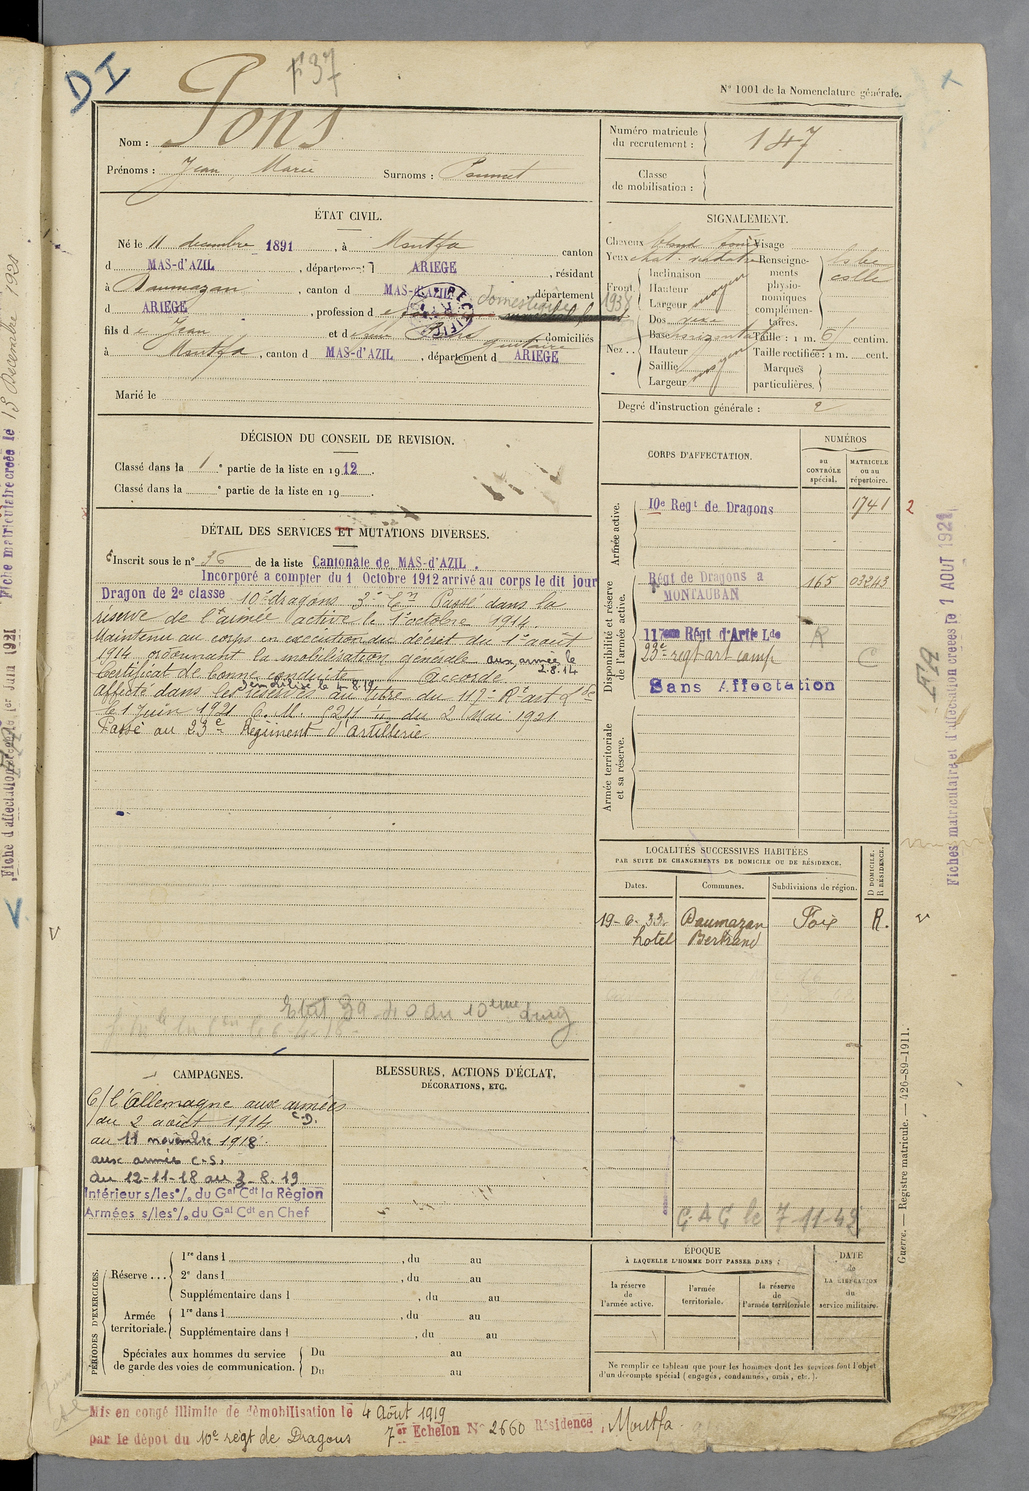 DI
F37
N° 1001 de la Nomenclature générale.
Nom : Pons
Prénoms : Jean Marie Surnoms :
Numéro matricule du recrutement : 147
Classe de mobilisation :
ÉTAT CIVIL.
Né le 11 décembre 1891, à Montfa canton
d MAS-d'AZIL, département d ARIEGE, résidant
à Daumazan, canton d MAS-d'AZIL, département
d ARIEGE, profession d domestique 1938
fils de Jean et de Pons domiciliés
à Montfa, canton d MAS-d'AZIL, département d ARIEGE
Marié le
SIGNALEMENT.
Cheveux blond
Yeux chat.
Front
Inclinaison
Hauteur moyen
Largeur
Nez
Dos
Base horizontale
Hauteur moyen
Saillie
Largeur
Visage
Renseignements physionomiques complémentaires.
Taille : 1 m. centim.
Taille rectifiée : 1 m. cent.
Marques particulières.
Degré d'instruction générale : 2
DÉCISION DU CONSEIL DE REVISION.
Classé dans la 1e partie de la liste en 1912.
Classé dans la e partie de la liste en 19
CORPS D'AFFECTATION.
NUMÉROS
au CONTRÔLE spécial.
MATRICULE ou au répertoire.
Armée active.
10e Regt de Dragons 1741 2
Disponibilité et réserve de l'armée active.
Régt de Dragons a MONTAUBAN 165 03243
117eme Régt d'Artie Lde R
23e regt art camp C
Sans Affectation
Armée territoriale et sa réserve.
DÉTAIL DES SERVICES ET MUTATIONS DIVERSES.
Inscrit sous le n° 36 de la liste Cantonale de MAS-d'AZIL.
Incorporé a compter du 1 Octobre 1912 arrivé au corps le dit jour
Dragon de 2e classe 10e dragons 3e Passé dans la
réserve de l'armée active le 1 octobre 1914.
Maintenu au corps en exécution du décret du 1er août
1914 ordonnant la mobilisation générale aux armées le 2.8.14
Certificat de bonne conduite accordé.
Affecté dans les réserves au titre du 117e Rt art Lde
le 1 Juin 1921 C. M. du 2 Mai 1921
Passé au 23e Régiment d'Artillerie
Etat 39-40 du 10eme drag
LOCALITÉS SUCCESSIVES HABITÉES
PAR SUITE DE CHANGEMENTS DE DOMICILE OU DE RÉSIDENCE.
Dates. Communes. Subdivisions de région. D DOMICILE. R RÉSIDENCE.
19-6-33 Daumazan Foix R.
hotel Bertrand
CAMPAGNES.
C/ l'Allemagne aux armées
du 2 août 1914 C.D.
au 11 novembre 1918
aux armées C-S.
du 12-11-18 au 3.8.19
Intérieur s/les o/o du Gal Cdt la Région
Armées s/les o/o du Gal Cdt en Chef
BLESSURES, ACTIONS D'ÉCLAT,
DÉCORATIONS, ETC.
le 7-11-42
PÉRIODES D'EXERCICES.
Réserve...
1re dans l, du au
2e dans l, du au
Supplémentaire dans l, du au
Armée territoriale.
1re dans l, du au
Supplémentaire dans l, du au
Spéciales aux hommes du service
de garde des voies de communication.
Du au
Du au
ÉPOQUE
À LAQUELLE L'HOMME DOIT PASSER DANS :
la réserve de l'armée active.
l'armée territoriale.
la réserve de l'armée territoriale
DATE de LA LIBÉRATION du service militaire.
Ne remplir ce tableau que pour les hommes dont les services font l'objet
d'un décompte spécial (engagés, condamnés, omis, etc.).
Mis en congé illimite de démobilisation le 4 Août 1919
par le dépot du 10e régt de Dragons 7e Echelon N° 2660 Résidence, Montfa
Guerre. — Registre matricule. — 426-89-1911.
Fiches matriculaire et d'affectation créées le 1 AOUT 1921
Fiche d'affectation créée le 1er Juin 1921
Fiche matriculaire créée le 15 Décembre 1921